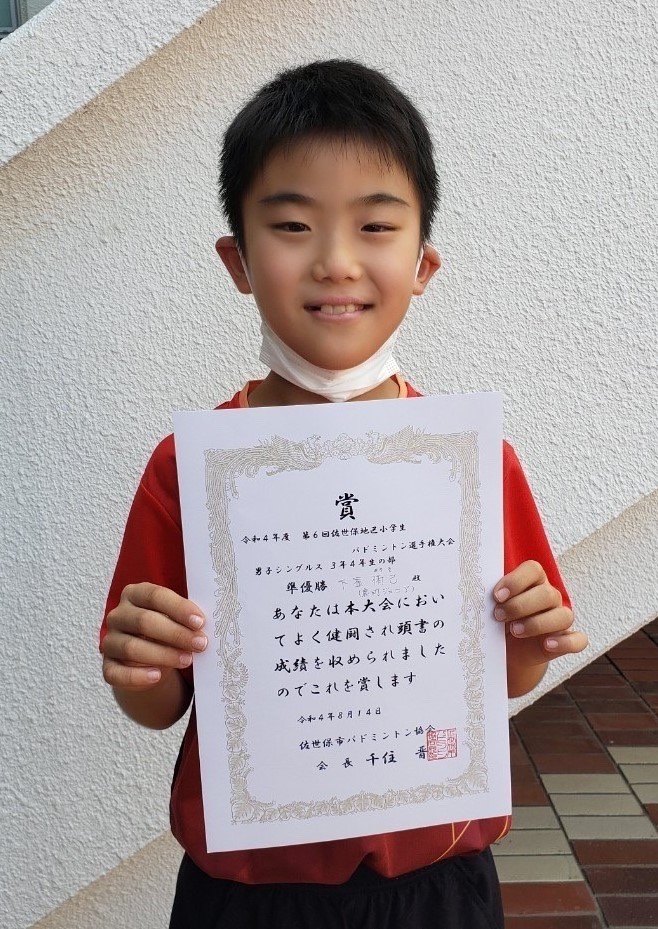 賞
令和4年度 第6回佐世保地区小学生
バドミントン選手権大会
男子シングルス 3年4年生の部
準優勝 殿
あなたは本大会におい
てよく健闘され頭書の
成績を収められました
のでこれを賞します
令和4年8月14日
佐世保市バドミントン協会
会 長 千住 晋